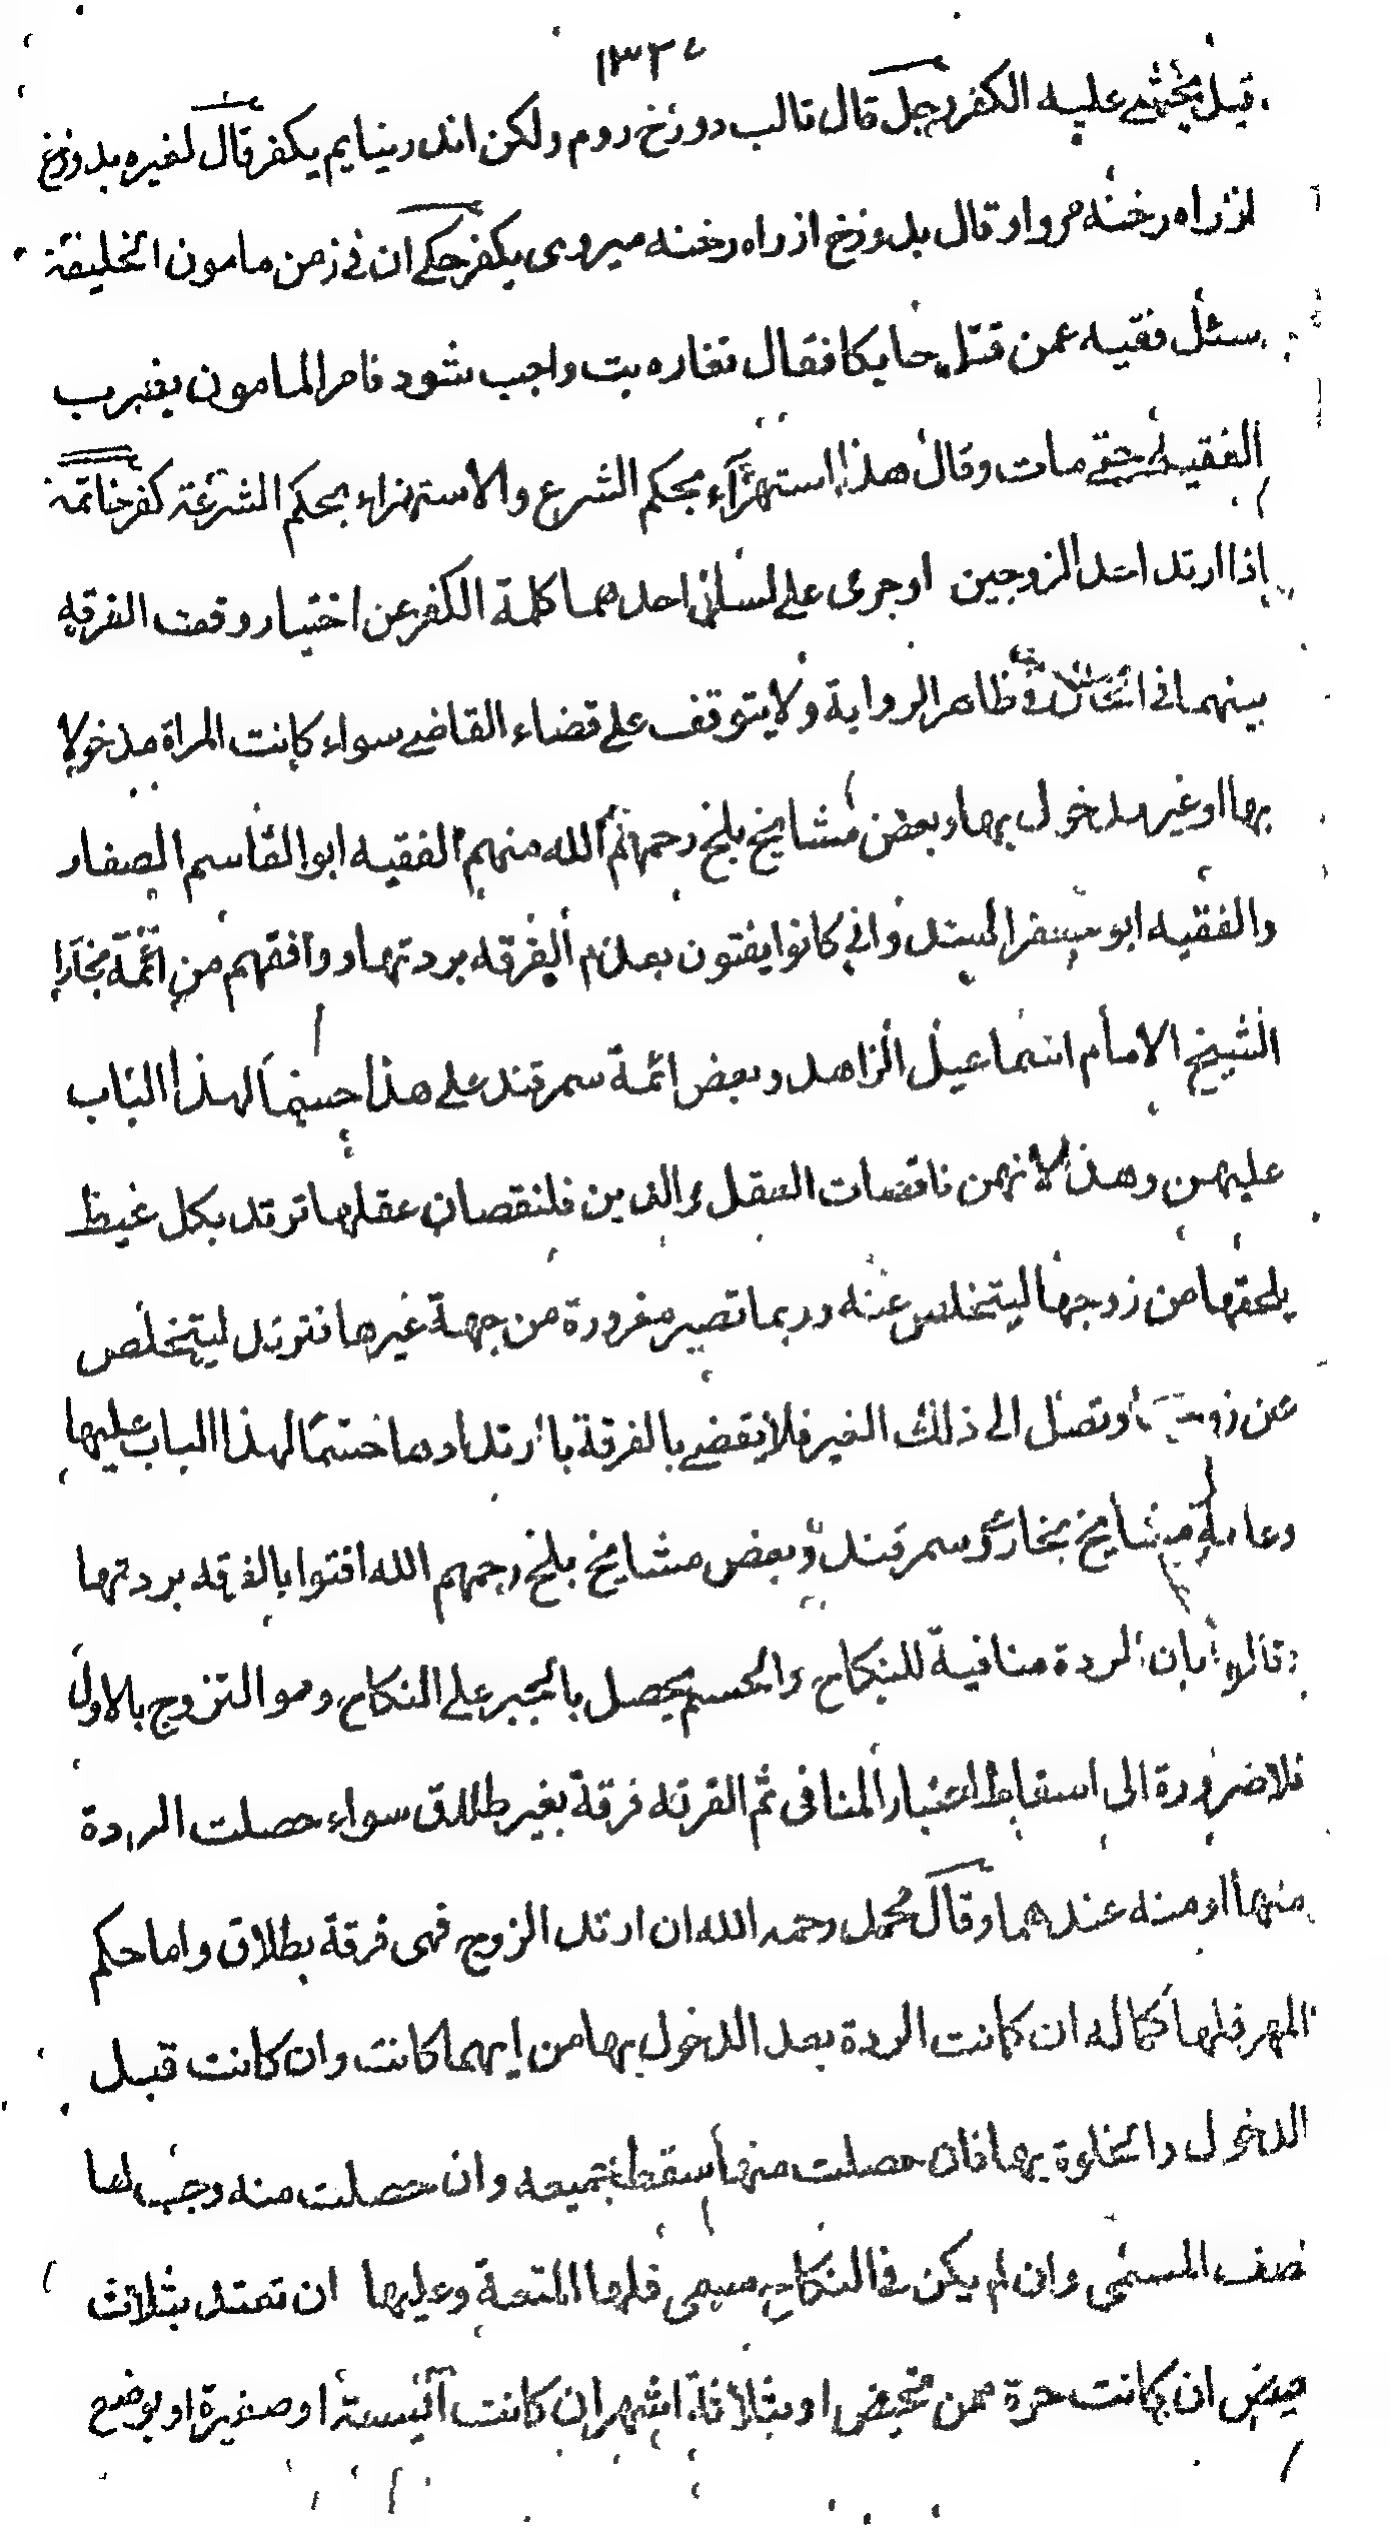 ١٣٢
قيل يخشى عليه الكفر رجل قال تالب دوزخ روم ولكن اندر نيايم يكفر قال لغيره بدوزخ
از راه رخنه مرو او قال بدوزخ از راه رخنه ميروى يكفر حكى ان فى زمن مامون الخليفة
سئل فقيه عمن قتل حايكا فقال تغاره بت واجب شود فامر المامون بضرب
الفقيه حتى مات وقال هذا استهزآء بحكم الشرع والاستهزاء بحكم الشرعة كفر خاتمة
اذا ارتد احد الزوجين اوجرى على لسان احدهما كلمة الكفر عن اختيار وقعت الفرقه
بينهما فى الحال فى ظاهر الرواية ولا يتوقف على قضاء القاضى سواء كانت المراة مدخولا
بها اوغير مدخول بها وبعض مشايخ بلخ رحمهم الله منهم الفقيه ابو القاسم الصفار
والفقيه ابو جعفر الهندوانى كانوا يفتون بعدم الفرقه بردتها ووافقهم من ائمة بخارا
الشيخ الامام اسماعيل الزاهد وبعض ائمة سمرقند على هذا حسما لهذا الباب
عليهن وهذا لانهن ناقصات العقل والدين فلنقصان عقلها ترتد بكل غيظ
يلحقها من زوجها ليتخلص عنه وربما تصير مغرورة من جهة غيرها فترتد ليتخلص
عن زوجها وتصل الى ذلك الغير فلا نقضى بالفرقة بارتدادها حسما لهذا الباب عليها
وعامة مشايخ بخارى وسمرقند وبعض مشايخ بلخ رحمهم الله افتوا بالفرقه بردتها
وقالوا بان الردة منافية للنكاح والحسم يحصل بالجبر على النكاح وهو التزوج بالاول
فلا ضرورة الى اسقاط اعتبار المنافى ثم الفرقه فرقة بغير طلاق سواء حصلت الردة
منها او منه عندهما وقال محمد رحمه الله ان ارتد الزوج فهى فرقة بطلاق واما حكم
المهر فلها كماله ان كانت الردة بعد الدخول بها من ايهما كانت وان كانت قبل
الدخول والخلوة بها فان حصلت منها سقط جميعه وان حصلت منه وجب لها
نصف المسمى وان لم يكن فى النكاح مسمى فلها المتعة وعليها ان تعتد بثلاث
حيض ان كانت حرة ممن تحيض او بثلاثة اشهر ان كانت آئيسة او صغيرة او بوضع